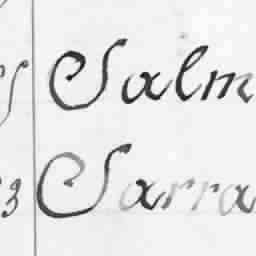 Salm
Sarra